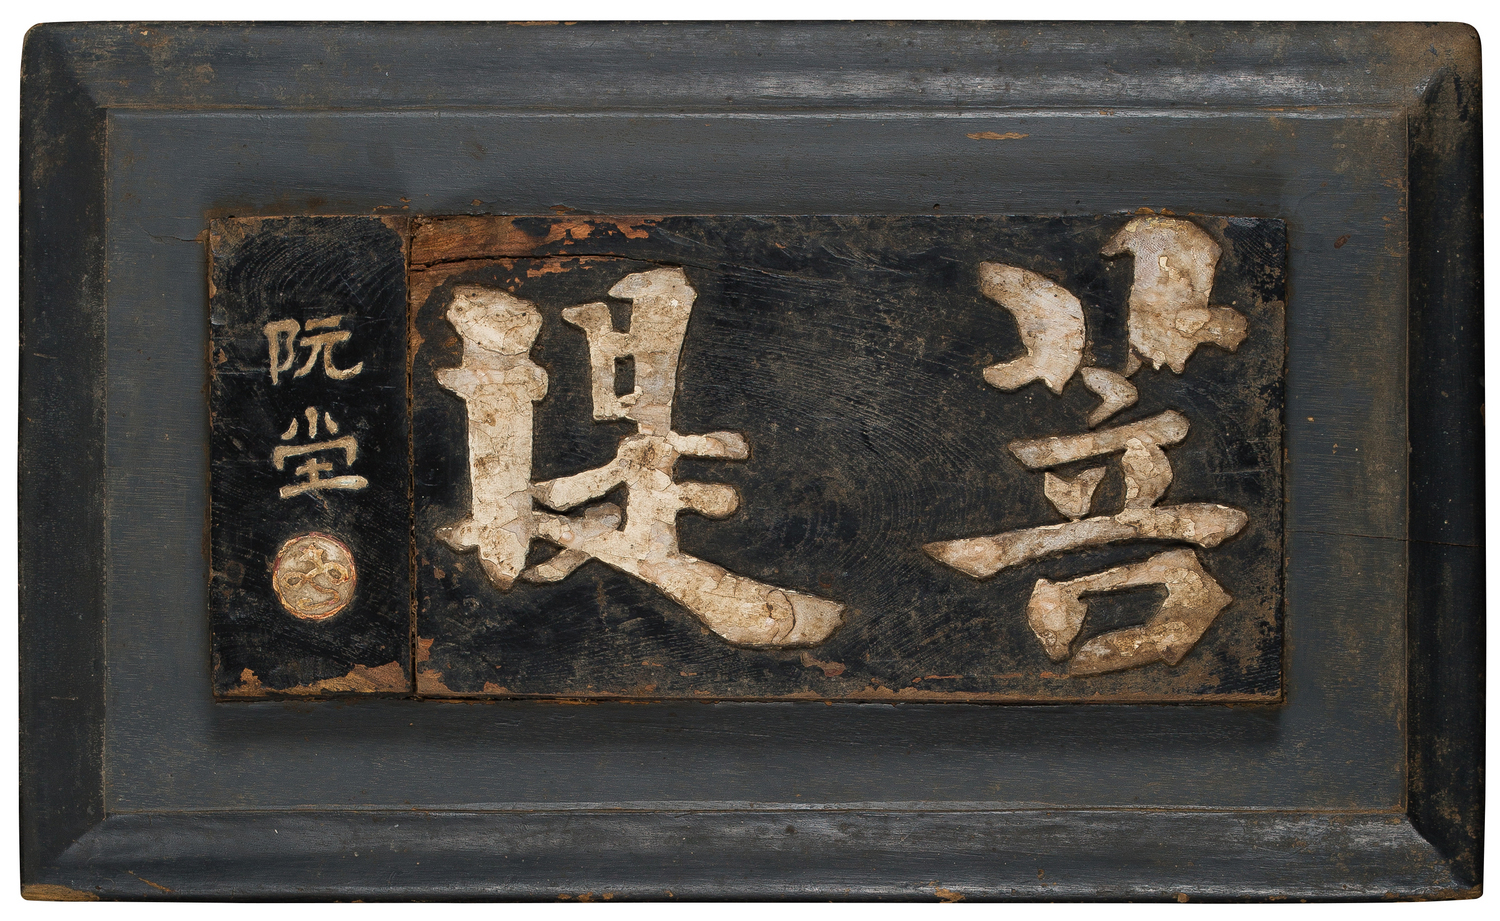 菩提
阮堂